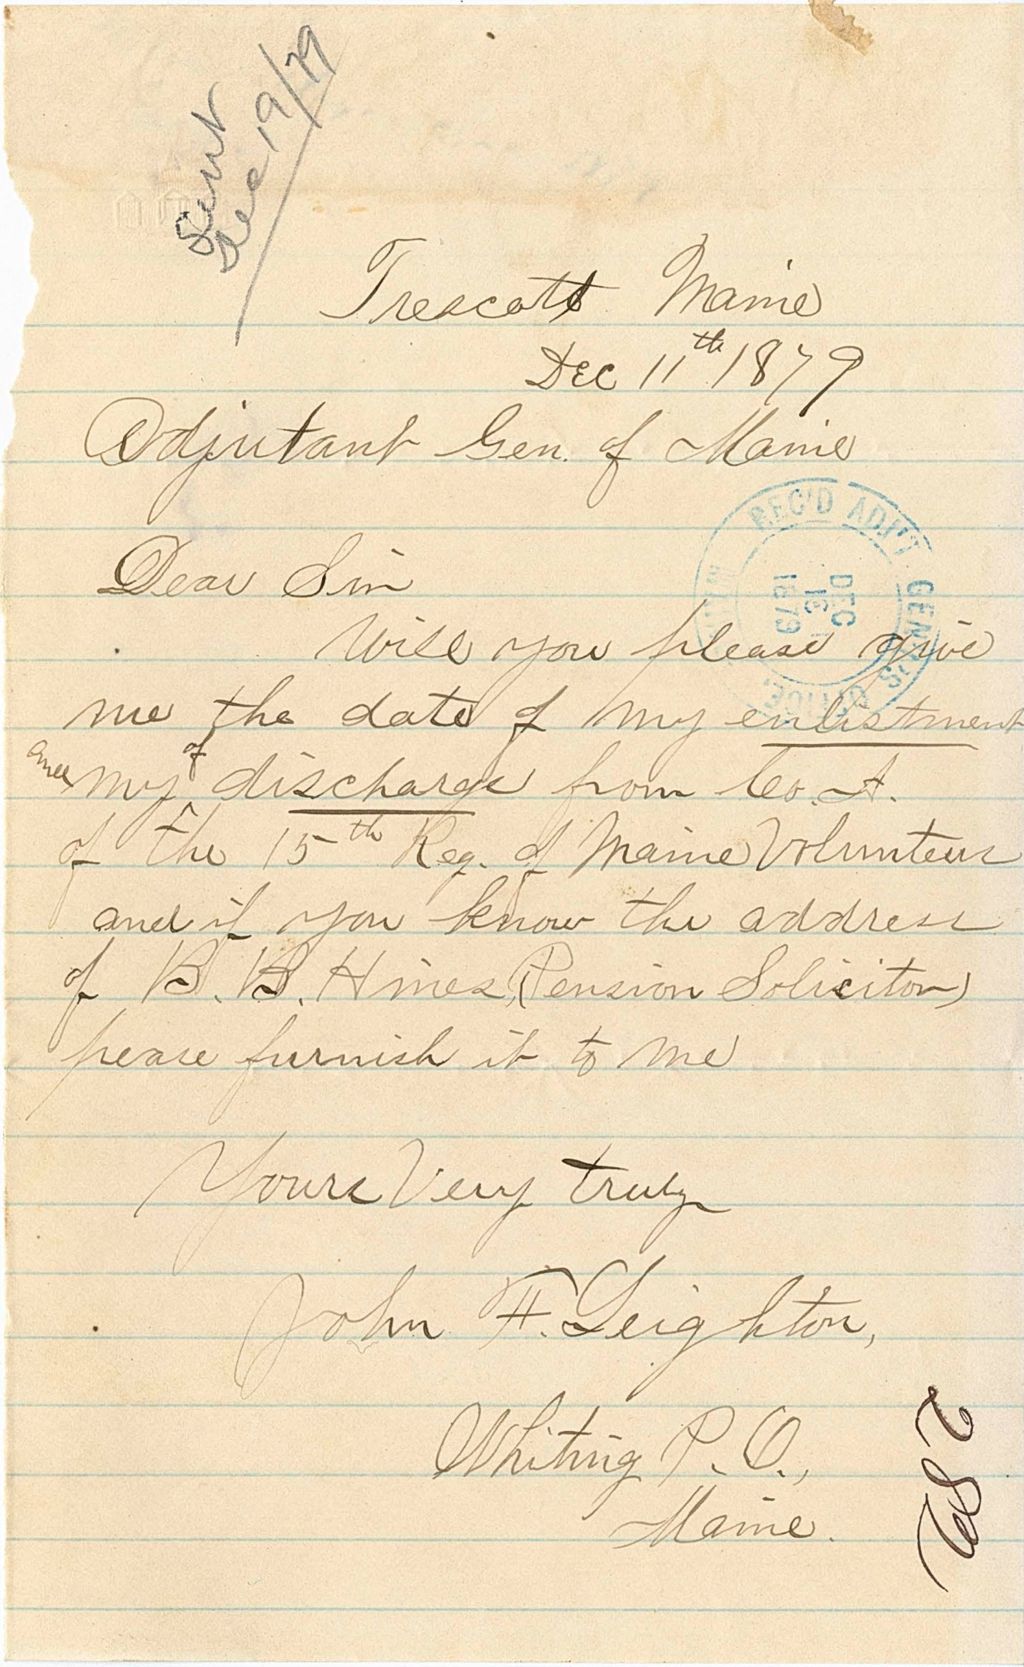 Sent
Dec 19/79
Trescott Maine
Dec 11th 1879
Adjutant Gen. of Maine
REC'D ADJ'T GEN'L'S OFFICE,
DEC
16
1879
Dear Sir
Will you please give
me the date of my enlistment
and my of discharge from Co. A.
of the 15th Reg. of Maine Volunteers
and if you know the address
of B. B. Hines, (Pension Solicitor)
pease furnish it to me
Yours Very truly
John F. Leighton,
Whiting P. O.,
Maine.